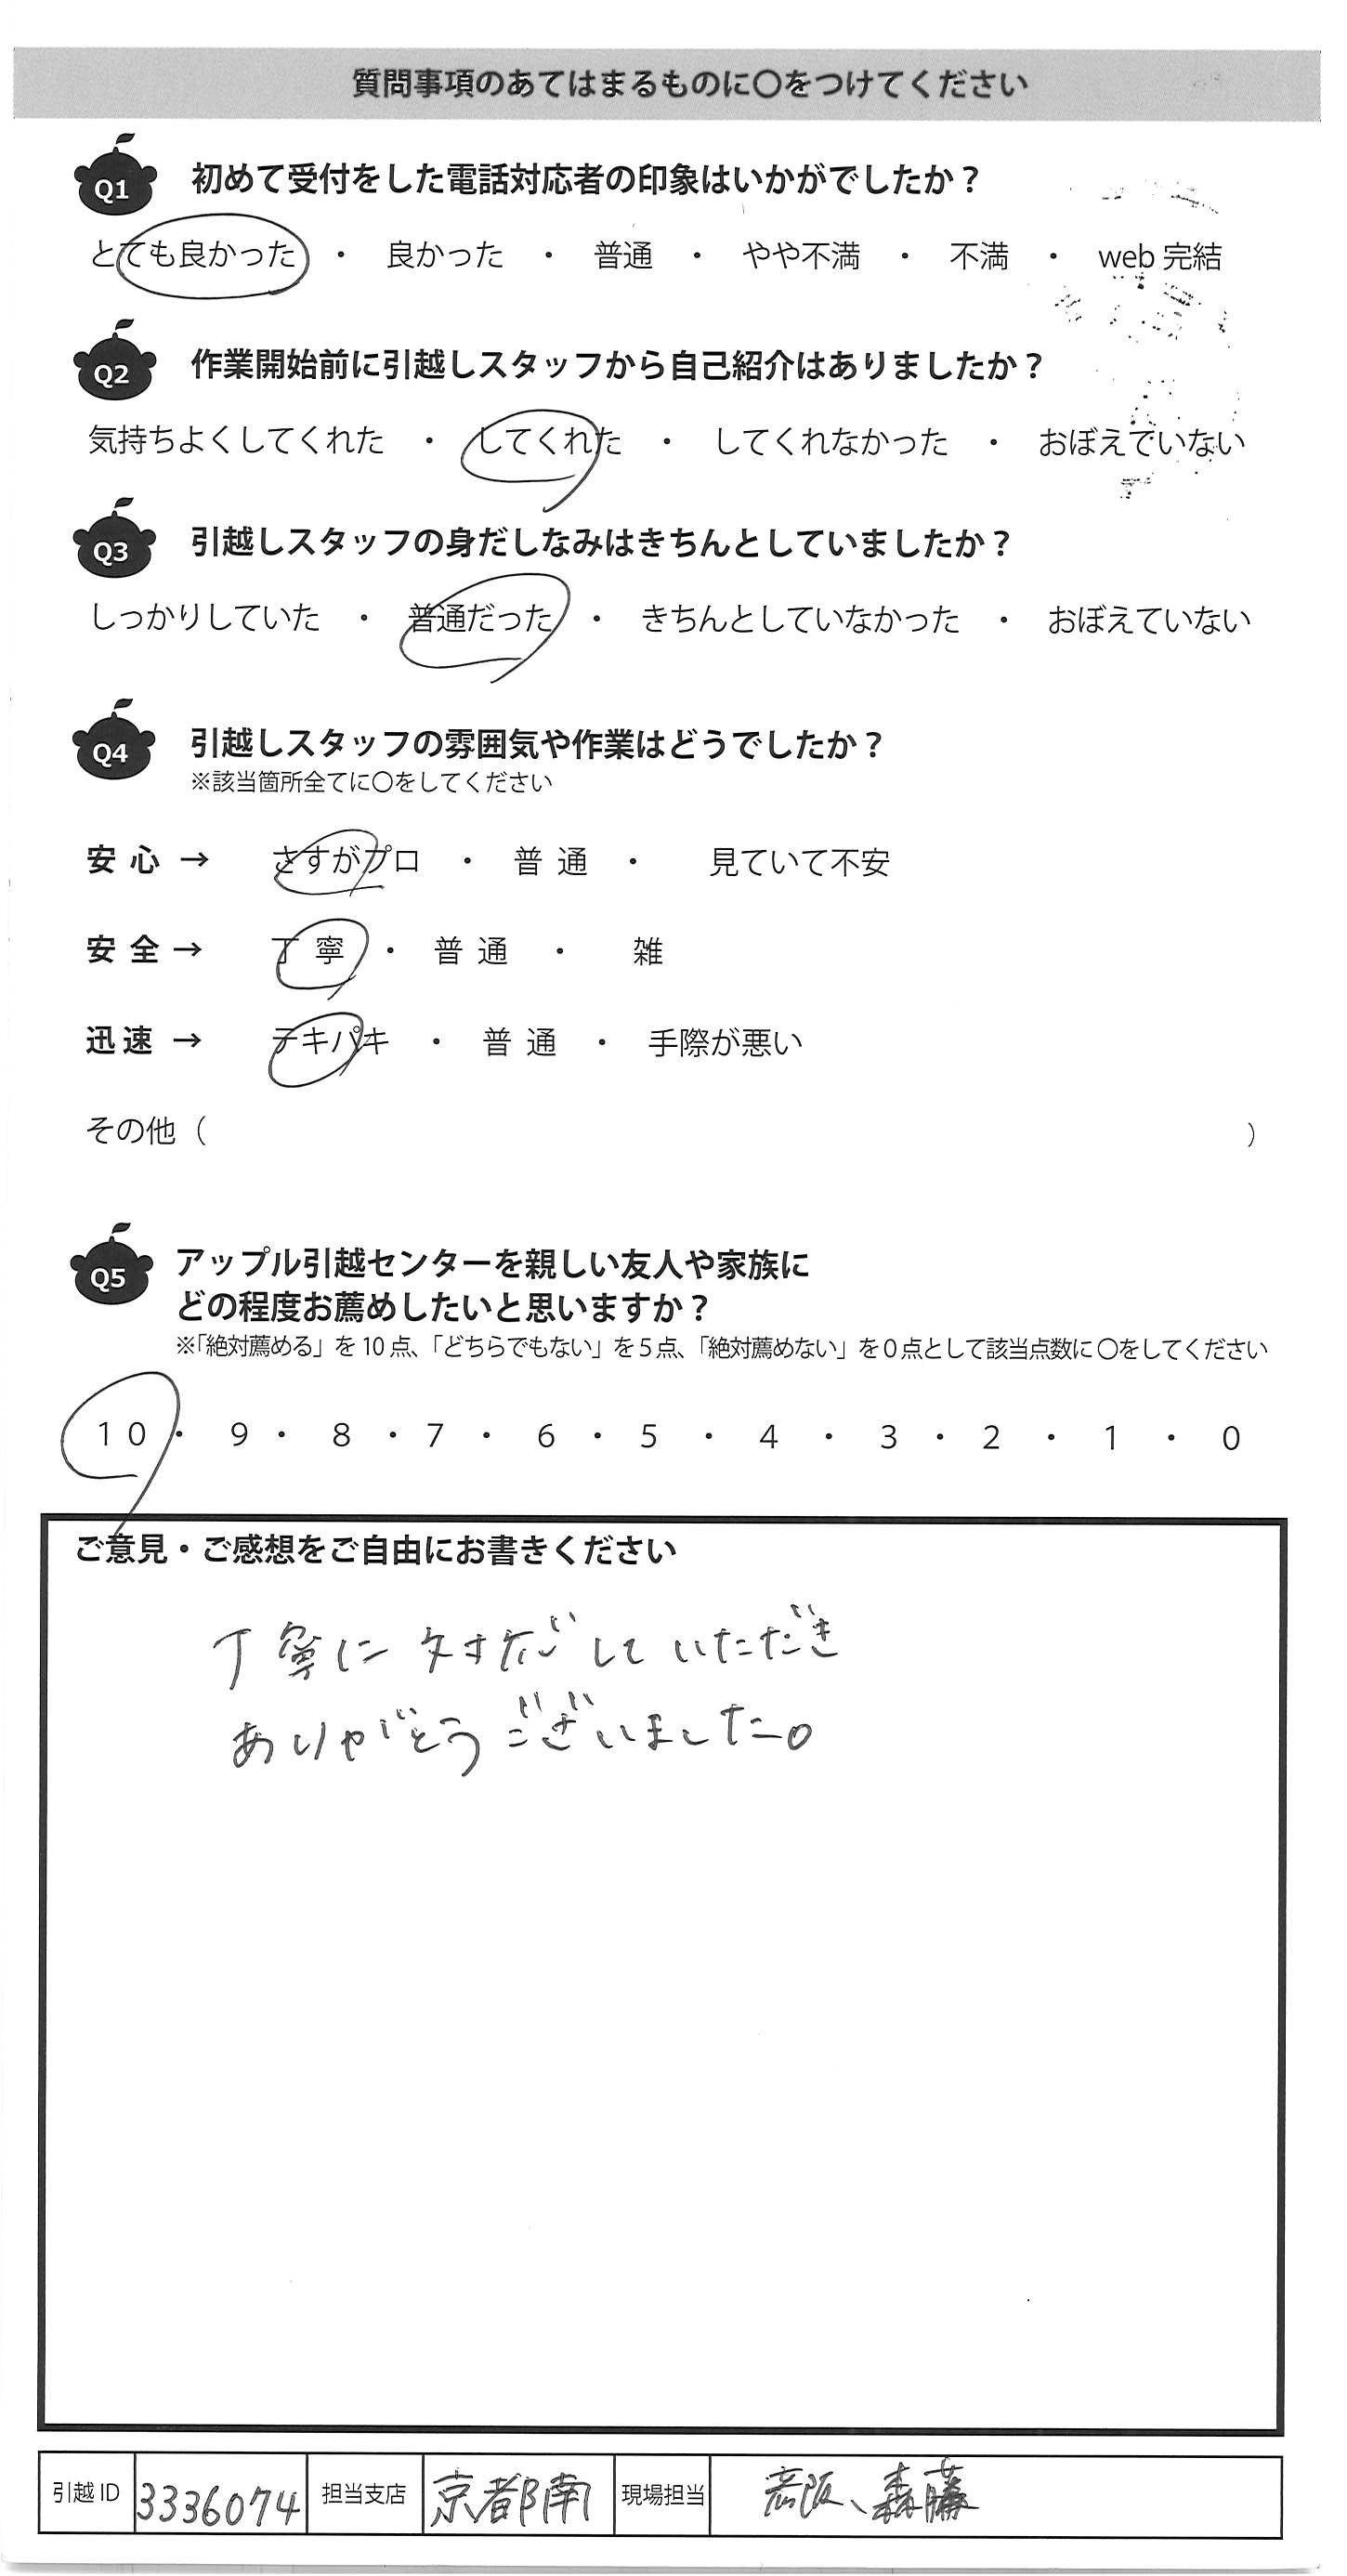 質問事項のあてはまるものに〇をつけてください
Q1 初めて受付をした電話対応者の印象はいかがでしたか？
とても良かった ・ 良かった ・ 普通 ・ やや不満 ・ 不満 ・ web 完結
Q2 作業開始前に引越しスタッフから自己紹介はありましたか？
気持ちよくしてくれた ・ してくれた ・ してくれなかった ・ おぼえていない
Q3 引越しスタッフの身だしなみはきちんとしていましたか？
しっかりしていた ・ 普通だった ・ きちんとしていなかった ・ おぼえていない
Q4 引越しスタッフの雰囲気や作業はどうでしたか？
※該当箇所全てに〇をしてください
安心 → さすがプロ ・ 普通 ・ 見ていて不安
安全 → 丁寧 ・ 普通 ・ 雑
迅速 → テキパキ ・ 普通 ・ 手際が悪い
その他（ ）
Q5 アップル引越センターを親しい友人や家族に
どの程度お薦めしたいと思いますか？
※「絶対薦める」を10点、「どちらでもない」を5点、「絶対薦めない」を0点として該当点数に〇をしてください
10 ・ 9 ・ 8 ・ 7 ・ 6 ・ 5 ・ 4 ・ 3 ・ 2 ・ 1 ・ 0
ご意見・ご感想をご自由にお書きください
丁寧に対応していただき
ありがとうございました。
引越ID 3336074 担当支店 京都南 現場担当